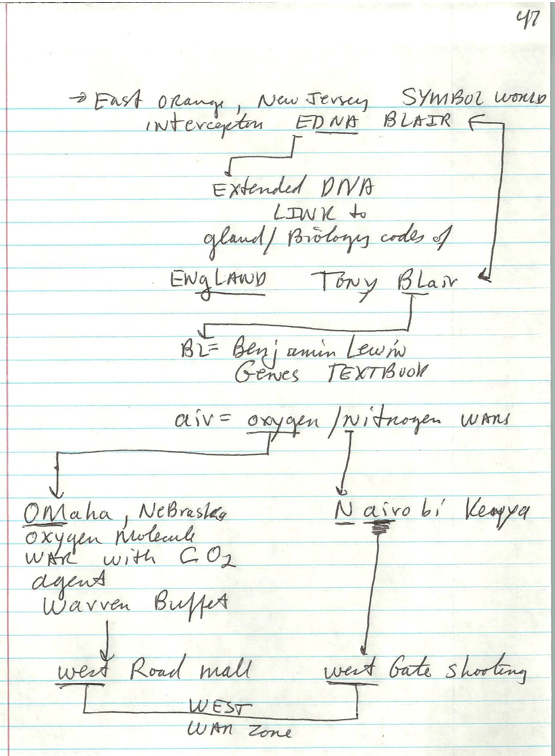 47
→ East Orange, New Jersey SYMBOL WORLD
interceptor EDNA BLAIR
Extended DNA
LINK to
gland/Biology codes of
ENgLAND Tony Blair
BL= Benjamin Lewin
Genes TEXTBOOK
air= oxygen/Nitrogen WARS
OMaha, NeBraska Nairobi Kenya
oxygen Molecule
WAR with CO2
agent
Warren Buffet
west Road mall west Gate shooting
WEST
WAR ZONE